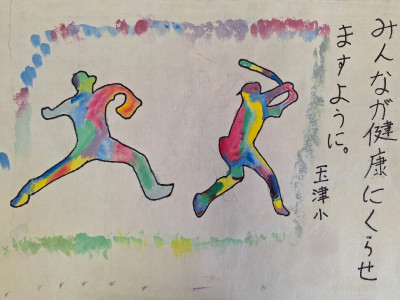 みんなが健康にくらせ
ますように。
玉津小